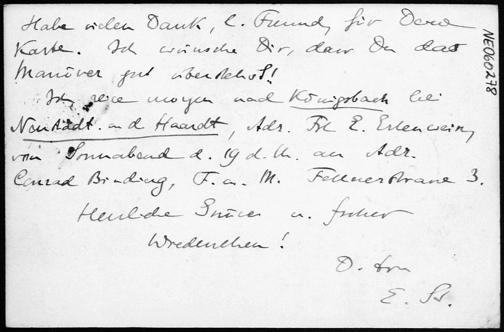 Habe vielen Dank, l. Freund, für Deine
Karte. Ich wünsche Dir, dass Du das
Manöver gut überstehst!
Ich reise morgen nach Königsbach bei
Neustadt a. d. Haardt, Adr. Frl. E. Erlenwein,
von Sonnabend d. 19 d. M. an Adr.
Conrad Binding, F. a. M. Fellnerstrasse 3.
Herzliche Grüsse u. frohes
Wiedersehen!
D.
E. St.
NE060278